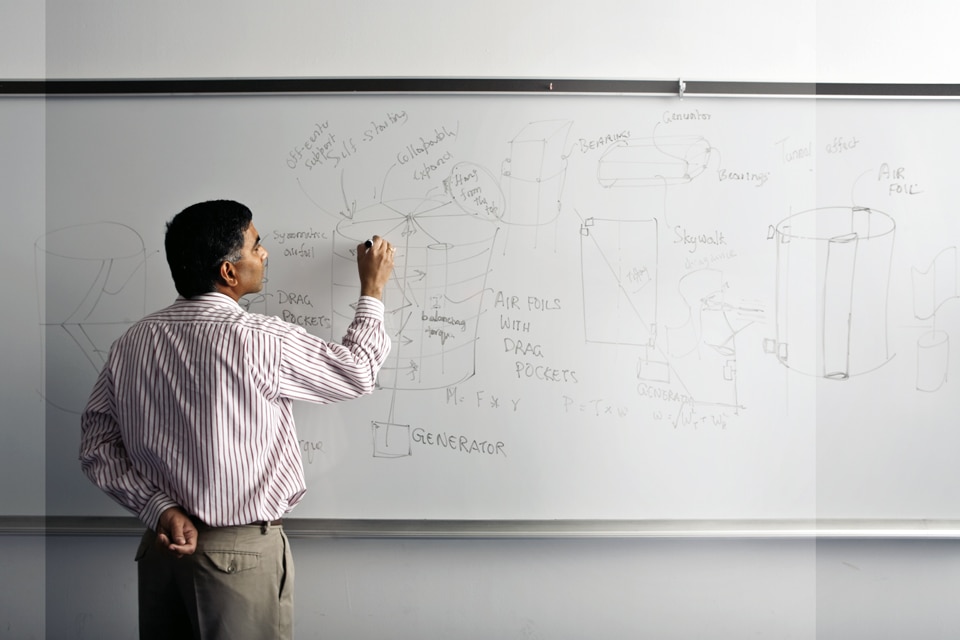 Off-center
support
Self-starting
Collapsable
Hang
from
the
BEARINGS
Generator
Bearings
Tunnel effect
AIR
FOIL
symmetric
DRAG
POCKETS
balancing
torque
AIR FOILS
WITH
DRAG
POCKETS
Skywalk
GENERATOR
M = F * r
P = T x w
GENERATOR